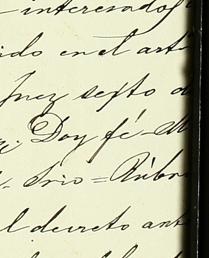 interesado
ido en el arti
Juez septo d
Doy fé - M
- Srio = Rúbri
l decreto ant